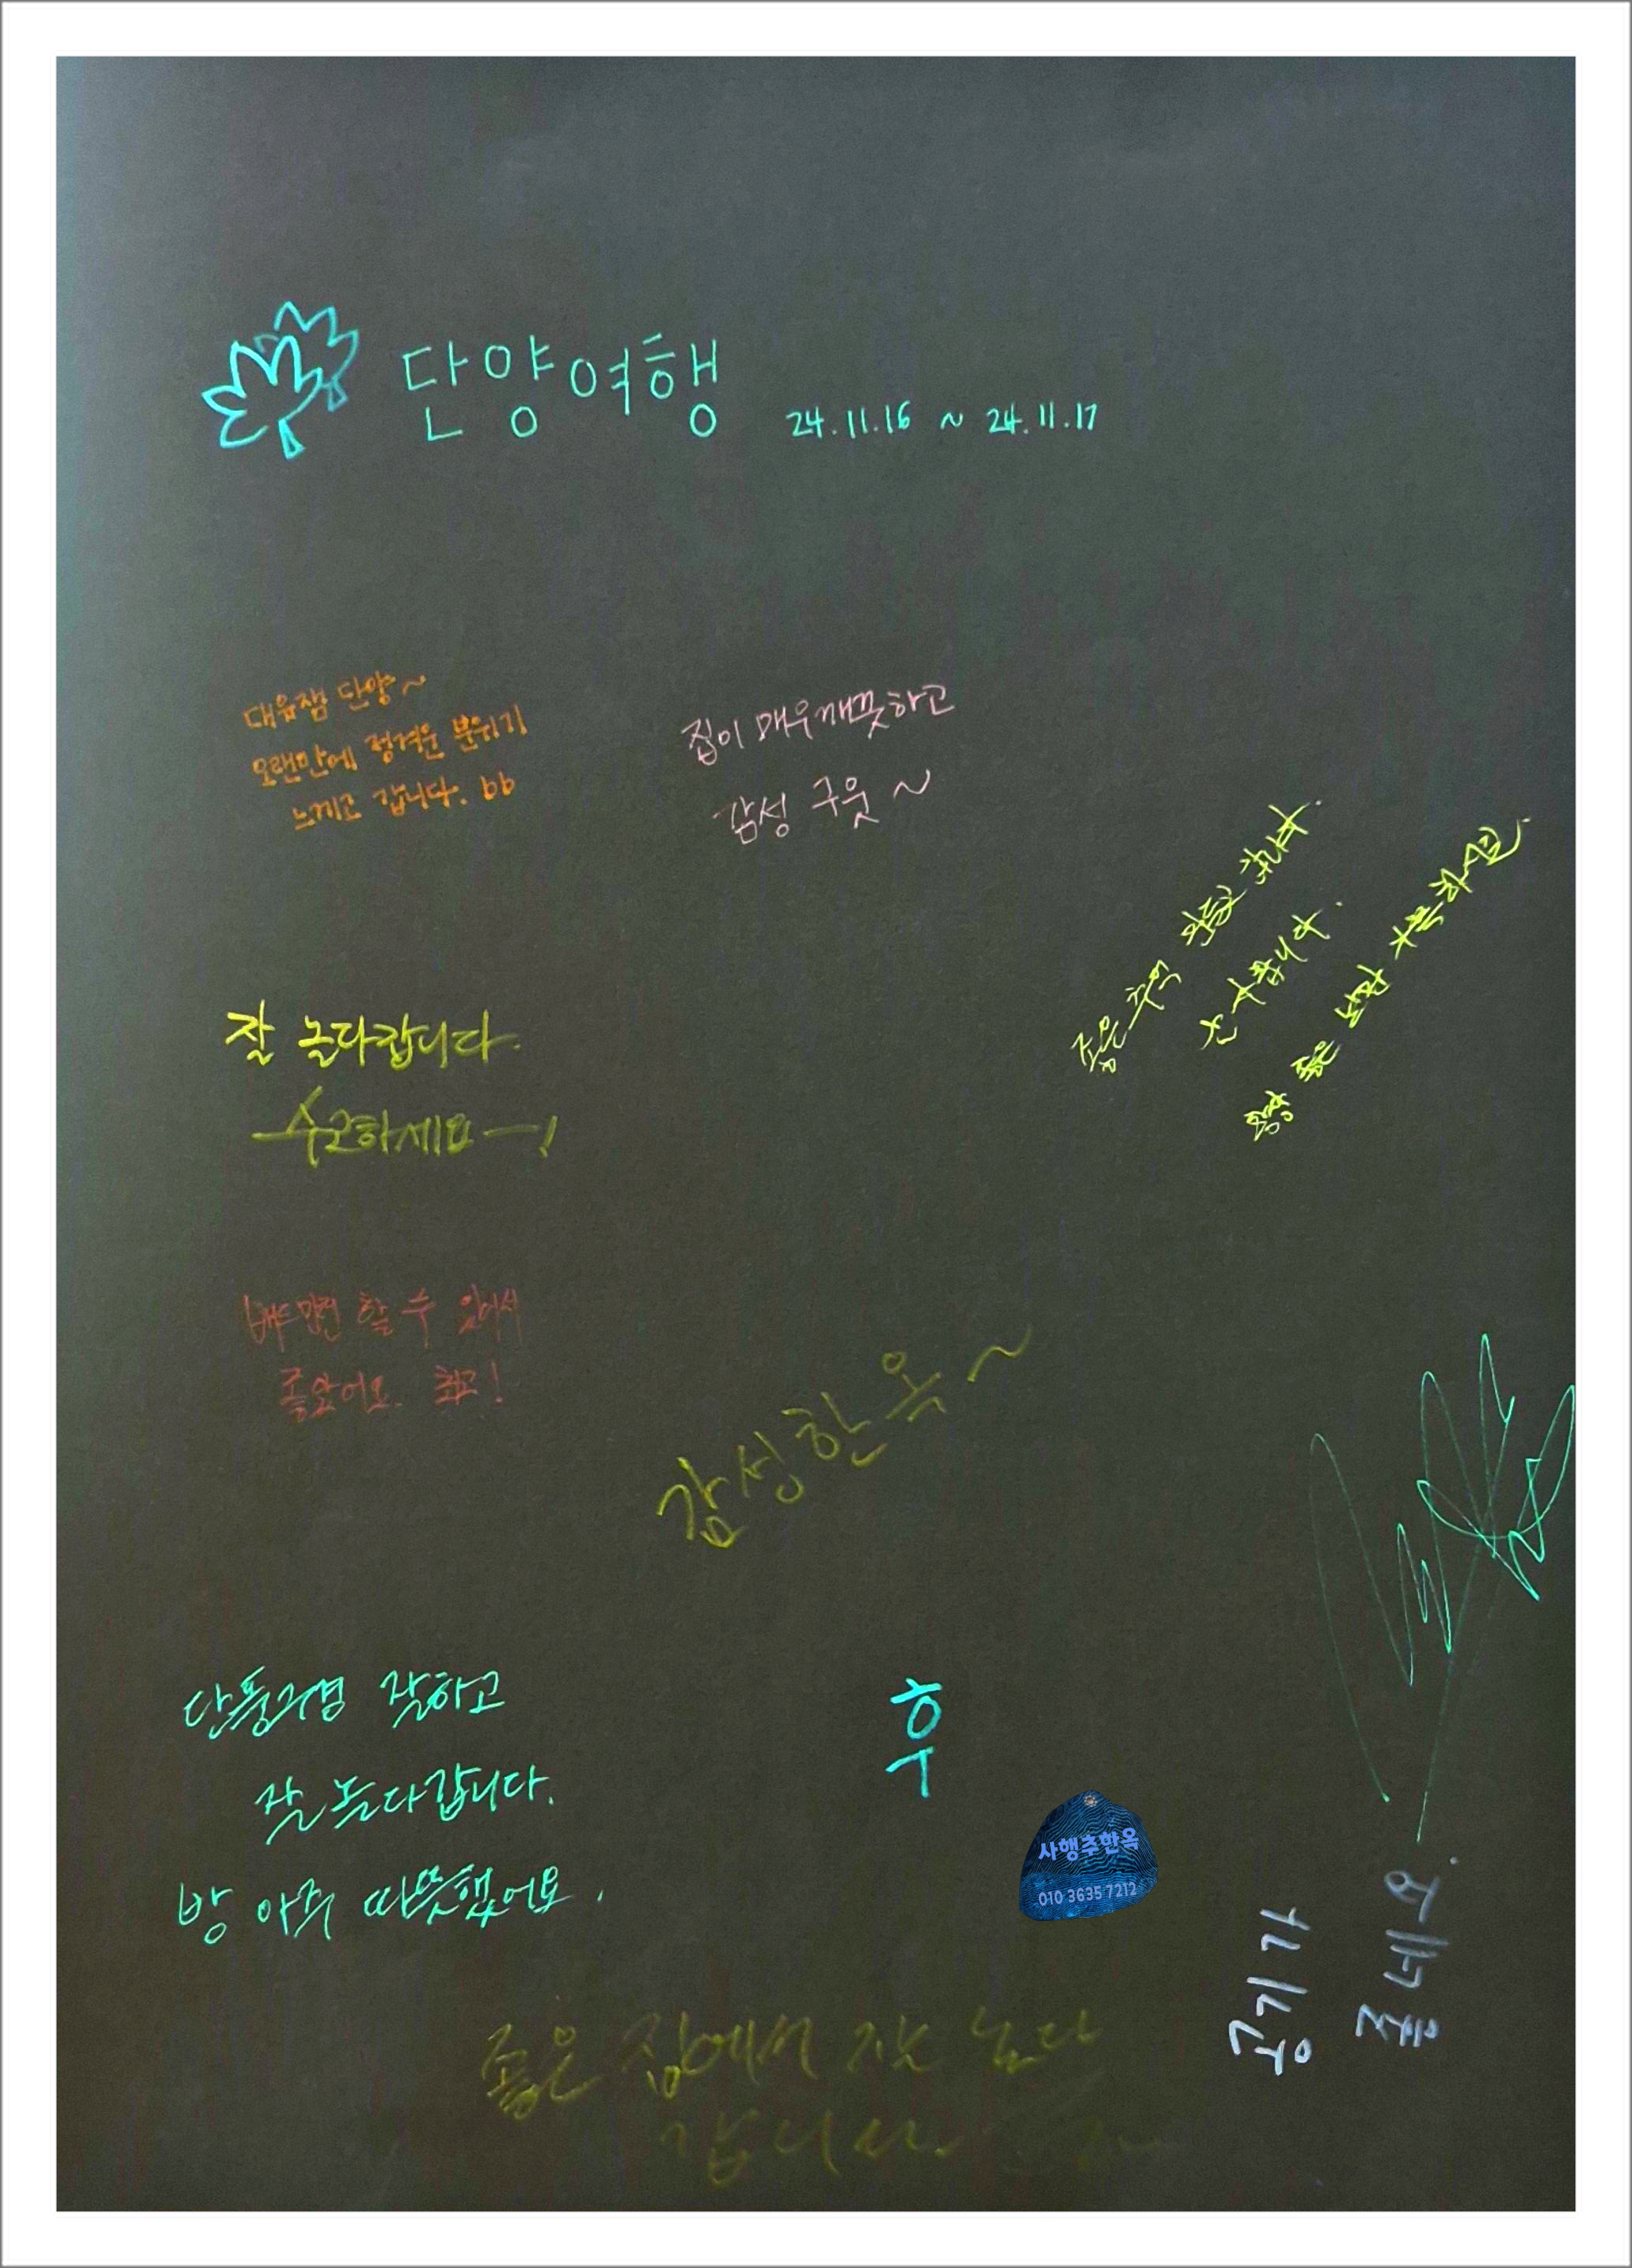 단양여행
24.11.16 ~ 24.11.17
대유잼 단양~
오랜만에 정겨운 분위기
느끼고 갑니다. bb
집이 매우깨끗하고
감성 구웃~
좋은 추억 만들고 갑니다.
감사합니다.
좋은 하시고
잘 놀다갑니다.
수고하세요-!
배드민턴 할 수 있어서
좋았어요. 최고!
감성한옥~
단풍구경 잘하고
잘 놀다갑니다.
방 아주 따뜻했어요.
후
사행추한옥
010 3635 7212
좋은 집에서 잘 놀다
갑니다.